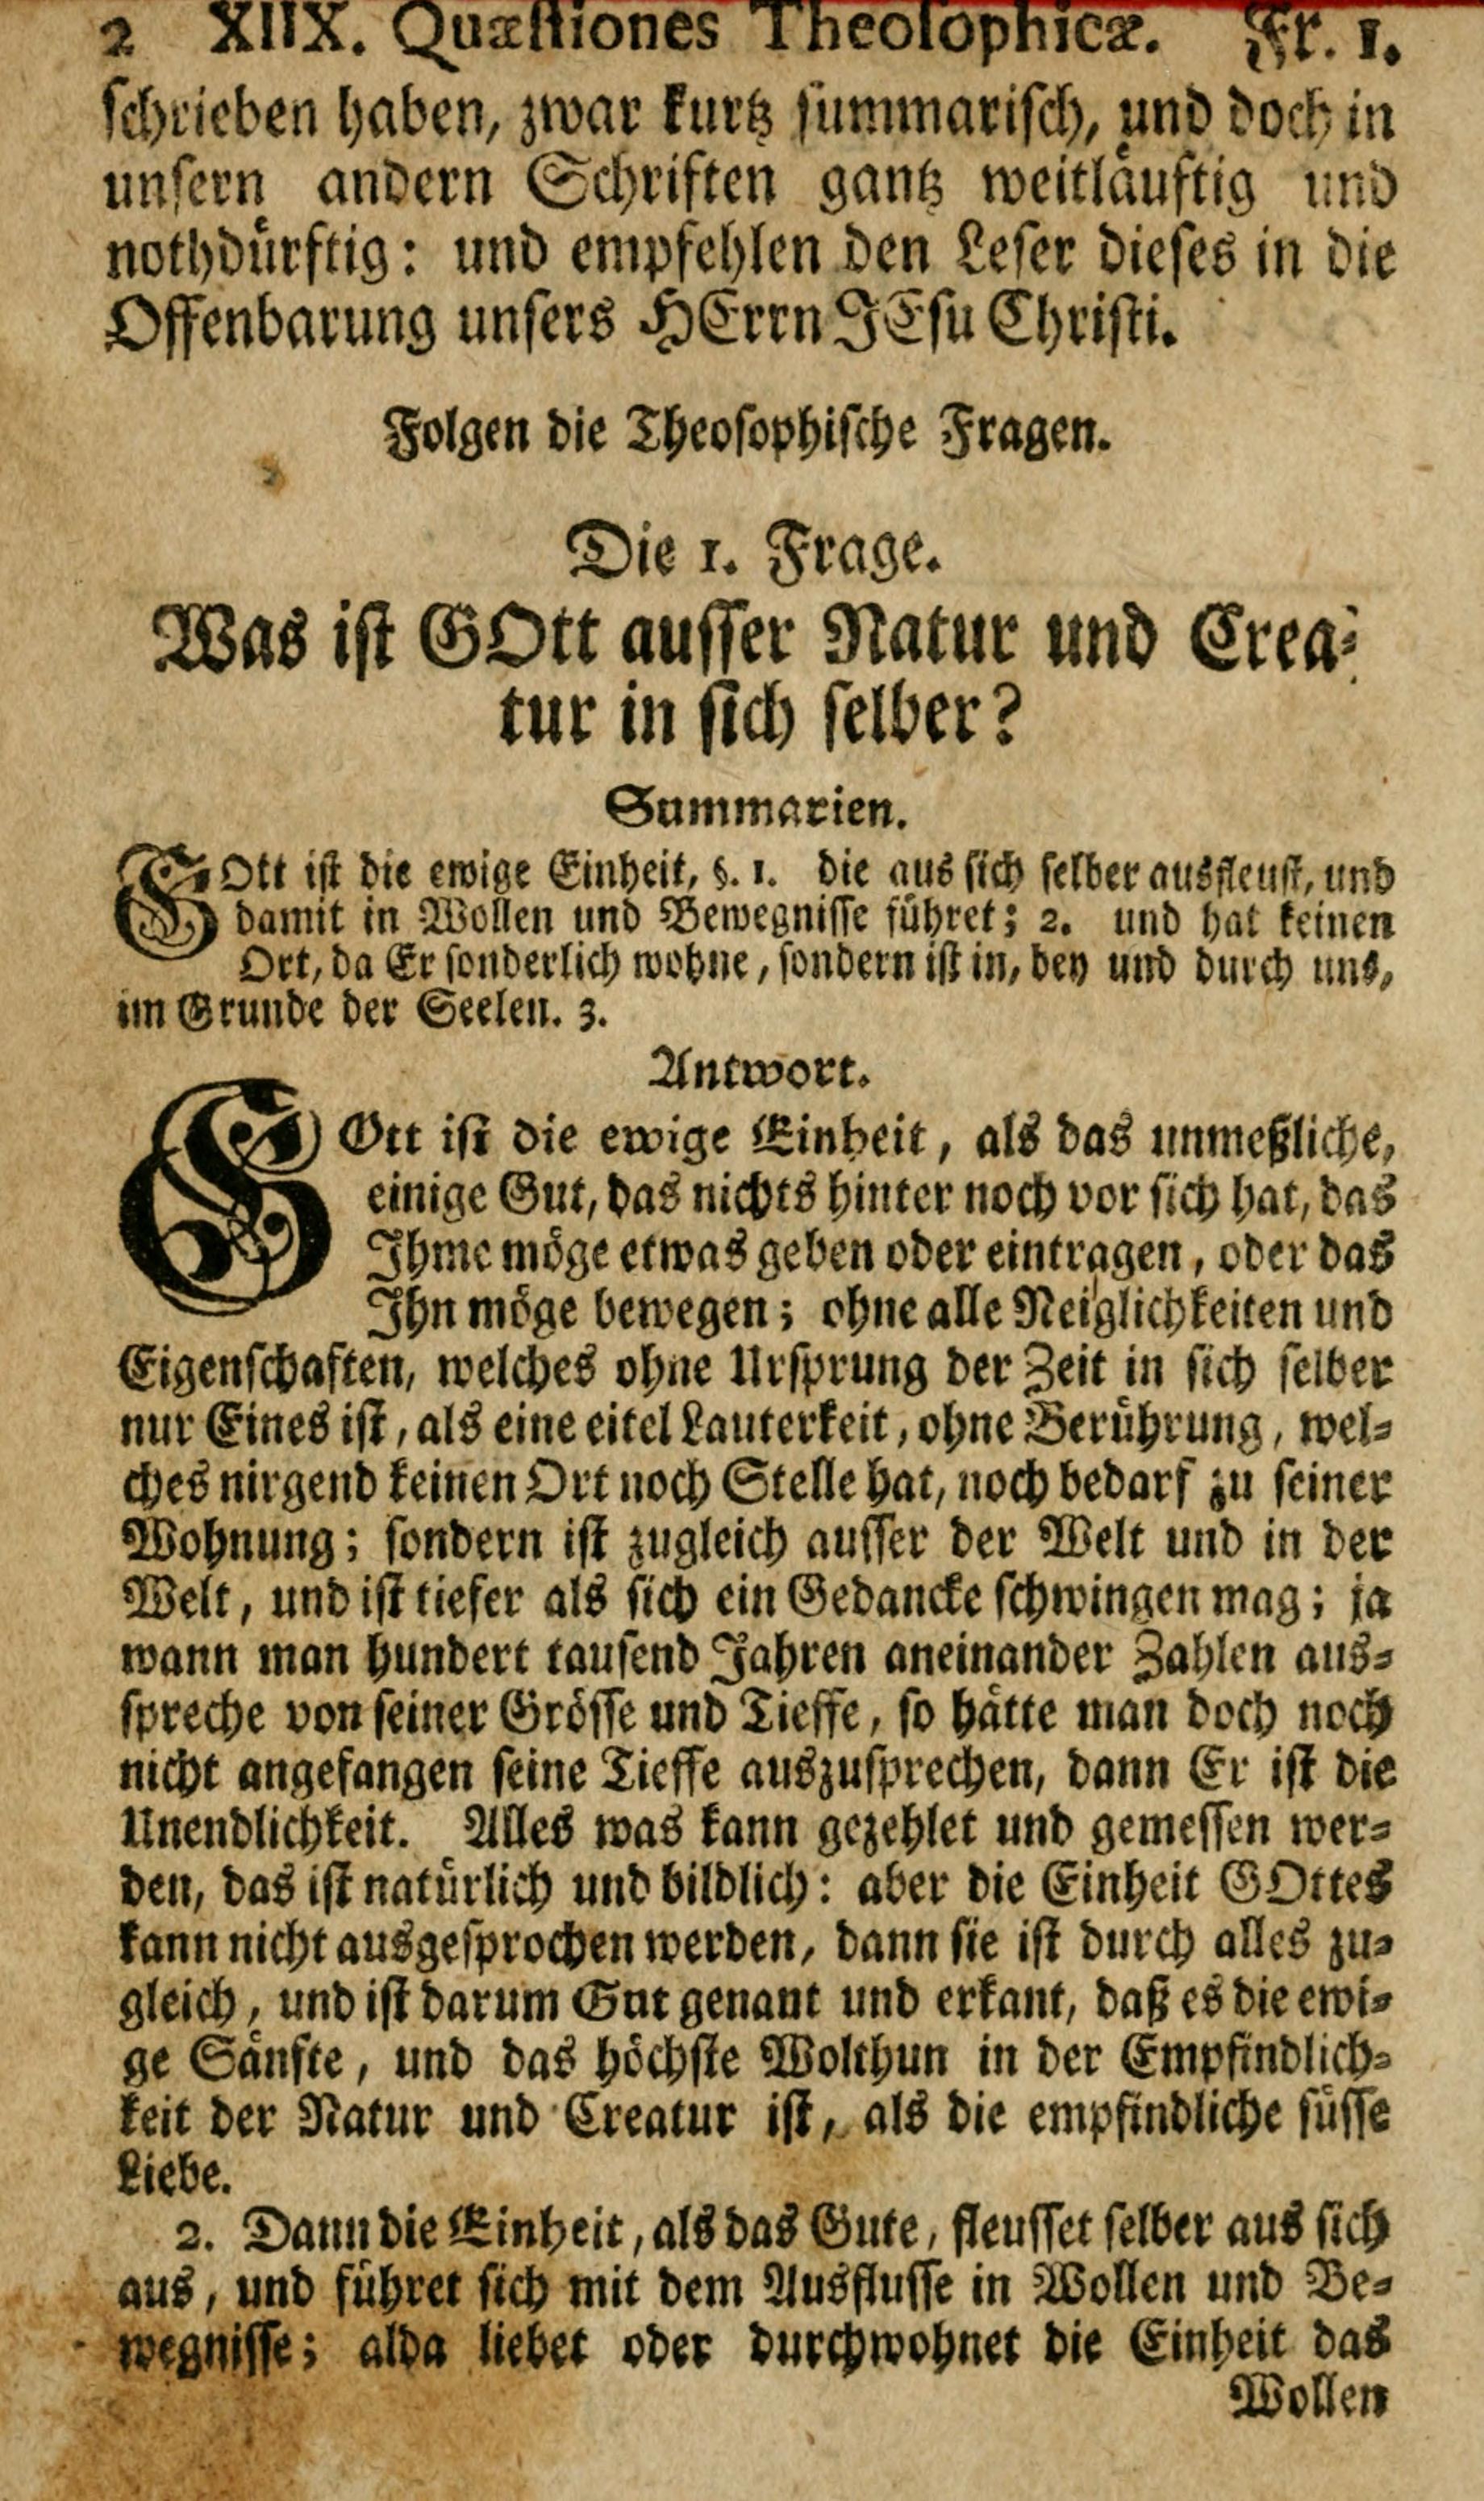 2 XIIX. Quæstiones Theosophicæ. Fr. 1.
schrieben haben, zwar kurtz summarisch, und doch in
unsern andern Schriften gantz weitläuftig und
nothdürftig: und empfehlen den Leser dieses in die
Offenbarung unsers HErrn JEsu Christi.
Folgen die Theosophische Fragen.
Die 1. Frage.
Was ist GOtt ausser Natur und Crea-
tur in sich selber?
Summarien.
GOtt ist die ewige Einheit, §. 1. die aus sich selber ausfleust, und
damit in Wollen und Bewegnisse führet; 2. und hat keinen
Ort, da Er sonderlich wohne, sondern ist in, bey und durch uns,
im Grunde der Seelen. 3.
Antwort.
GOtt ist die ewige Einheit, als das unmeßliche,
einige Gut, das nichts hinter noch vor sich hat, das
Ihme möge etwas geben oder eintragen, oder das
Ihn möge bewegen; ohne alle Neiglichkeiten und
Eigenschaften, welches ohne Ursprung der Zeit in sich selber
nur Eines ist, als eine eitel Lauterkeit, ohne Berührung, wel-
ches nirgend keinen Ort noch Stelle hat, noch bedarf zu seiner
Wohnung; sondern ist zugleich ausser der Welt und in der
Welt, und ist tiefer als sich ein Gedancke schwingen mag; ja
wann man hundert tausend Jahren aneinander Zahlen aus-
spreche von seiner Grösse und Tieffe, so hätte man doch noch
nicht angefangen seine Tieffe auszusprechen, dann Er ist die
Unendlichkeit. Alles was kann gezehlet und gemessen wer-
den, das ist natürlich und bildlich: aber die Einheit GOttes
kann nicht ausgesprochen werden, dann sie ist durch alles zu-
gleich, und ist darum Gut genant und erkant, daß es die ewi-
ge Sänfte, und das höchste Wolthun in der Empfindlich-
keit der Natur und Creatur ist, als die empfindliche süsse
Liebe.
2. Dann die Einheit, als das Gute, fleusset selber aus sich
aus, und führet sich mit dem Ausflusse in Wollen und Be-
wegnisse; alda liebet oder durchwohnet die Einheit das
Wollen